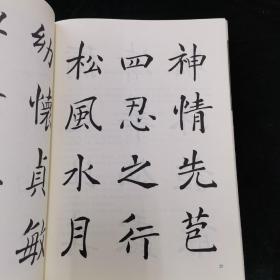 神情先苞
四忍之行
松風水月
幼懷貞敏